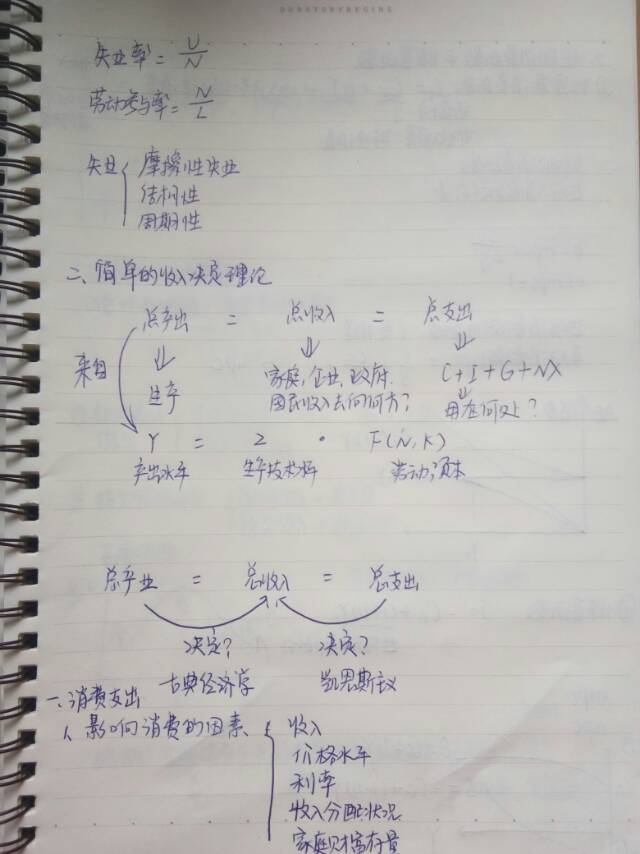 失业率 = U/N
劳动参与率 = N/L
失业 { 摩擦性失业
结构性
周期性
二、简单的收入决定理论
总产出 = 总收入 = 总支出
来自 生产 家庭,企业,政府. C+I+G+NX
国民收入去向何方? 用在何处?
Y = Z · F(N,K)
产出水平 生产技术水平 劳动,资本
总产业 = 总收入 = 总支出
决定? 决定?
古典经济学 凯恩斯主义
一、消费支出
1、影响消费的因素 { 收入
价格水平
利率
收入分配状况
家庭财富存量